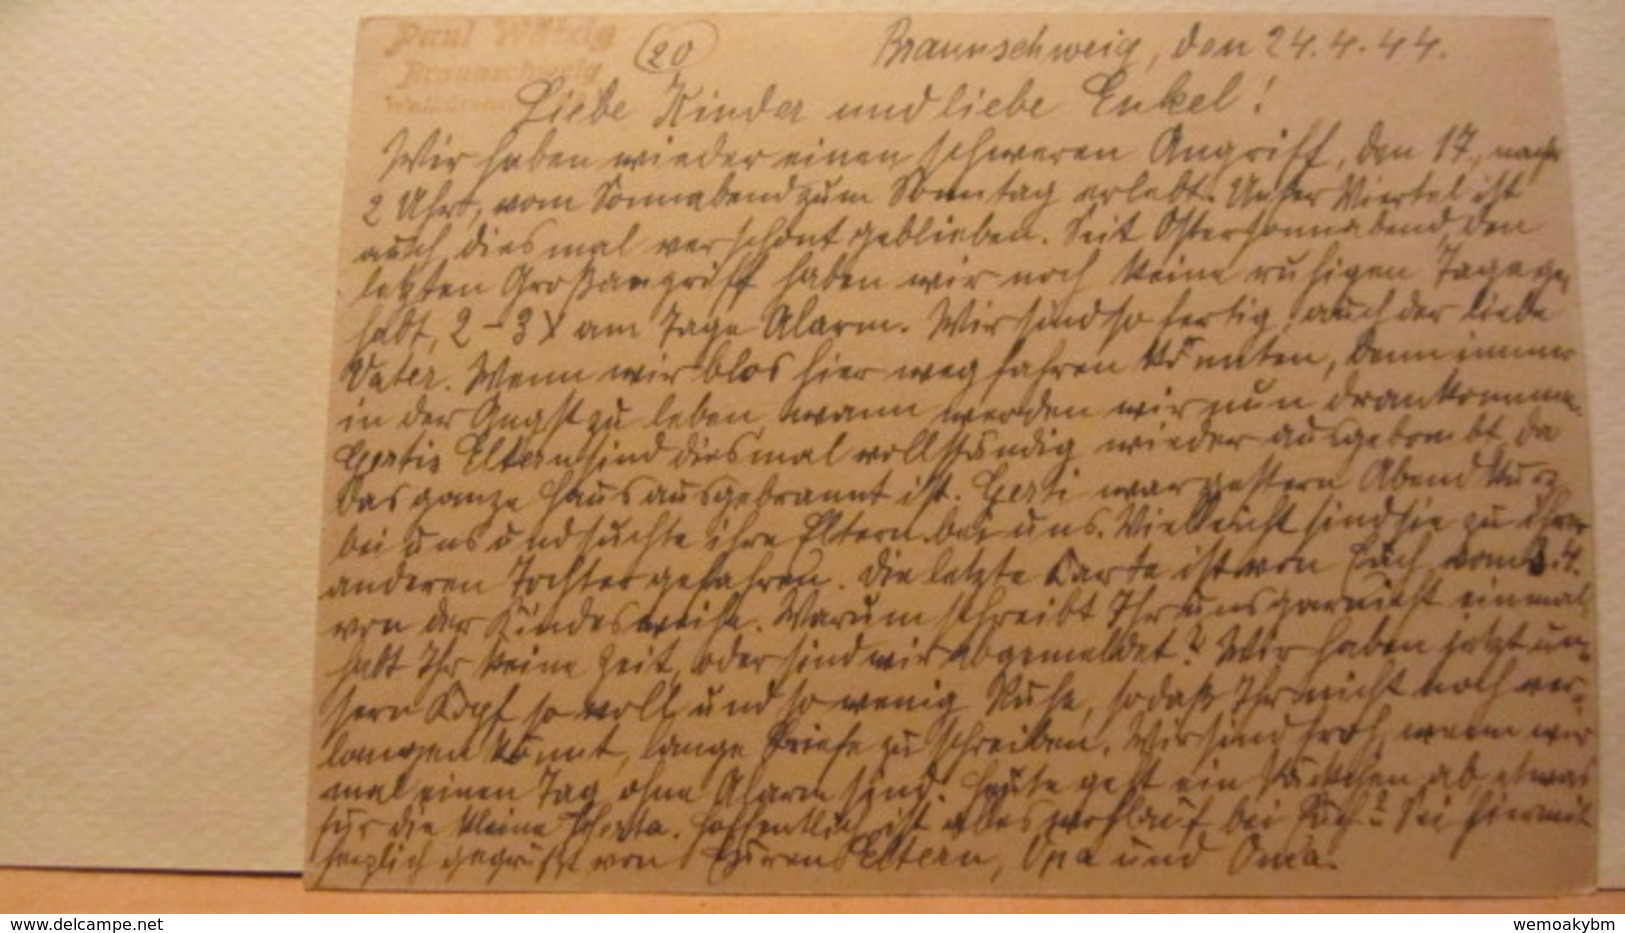 Paul
Braunschweig
(20)
Braunschweig, den 24.4.44.
Liebe Kinder und liebe Enkel!
Wir haben wieder einen schweren Angriff, den 17, nachts
2 Uhr, vom Sonnabend zum Sonntag erlebt. Unser Viertel ist
auch diesmal verschont geblieben. Seit Ostersonnabend, den
letzten Großangriff haben wir noch keine ruhigen Tage ge-
habt, 2-3 X am Tage Alarm. Wir sind so fertig, auch der liebe
Vater. Wenn wir blos hier weg fahren könnten, denn immer
in der Angst zu leben, wann werden wir nun drankommen.
Gertis Eltern sind diesmal vollständig wieder ausgebombt, da
das ganze Haus ausgebrannt ist. Gerti war gestern Abend kurz
bei uns und suchte ihre Eltern bei uns. Vielleicht sind sie zu ihrer
anderen Tochter gefahren. Die letzte Karte ist von Euch vom 3.4.
von der Kindesweihe. Warum schreibt Ihr uns garnicht einmal,
habt Ihr keine Zeit, oder sind wir abgemeldet? Wir haben jetzt un-
sern Kopf so voll und so wenig Ruhe, sodaß Ihr nicht noch ver-
langen könnt, lange Briefe zu schreiben. Wir sind froh, wenn wir
mal einen Tag ohne Alarm sind. Heute geht ein Päckchen ab, etwas
für die kleine. Hoffentlich ist alles wohlauf bei Euch? Sei hiermit
herzlich gegrüßt von Euren Eltern, Opa und Oma.
wemoakybm
www.delcampe.net